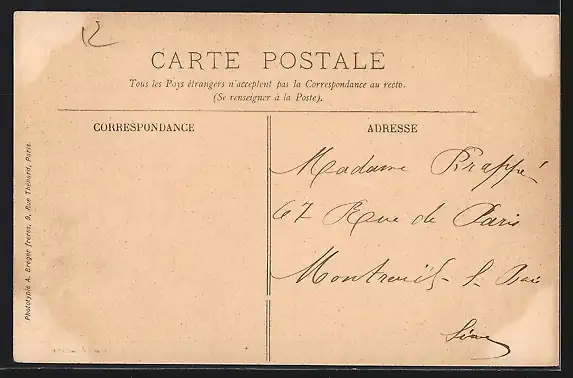 12
CARTE POSTALE
Tous les Pays étrangers n'acceptent pas la Correspondance au recto.
(Se renseigner à la Poste).
CORRESPONDANCE
ADRESSE
Madame Prappé
67 Rue de Paris
Montreuil-s-Bois
Seine
Phototypie A. Breger frères, 9, Rue Thénard, Paris.